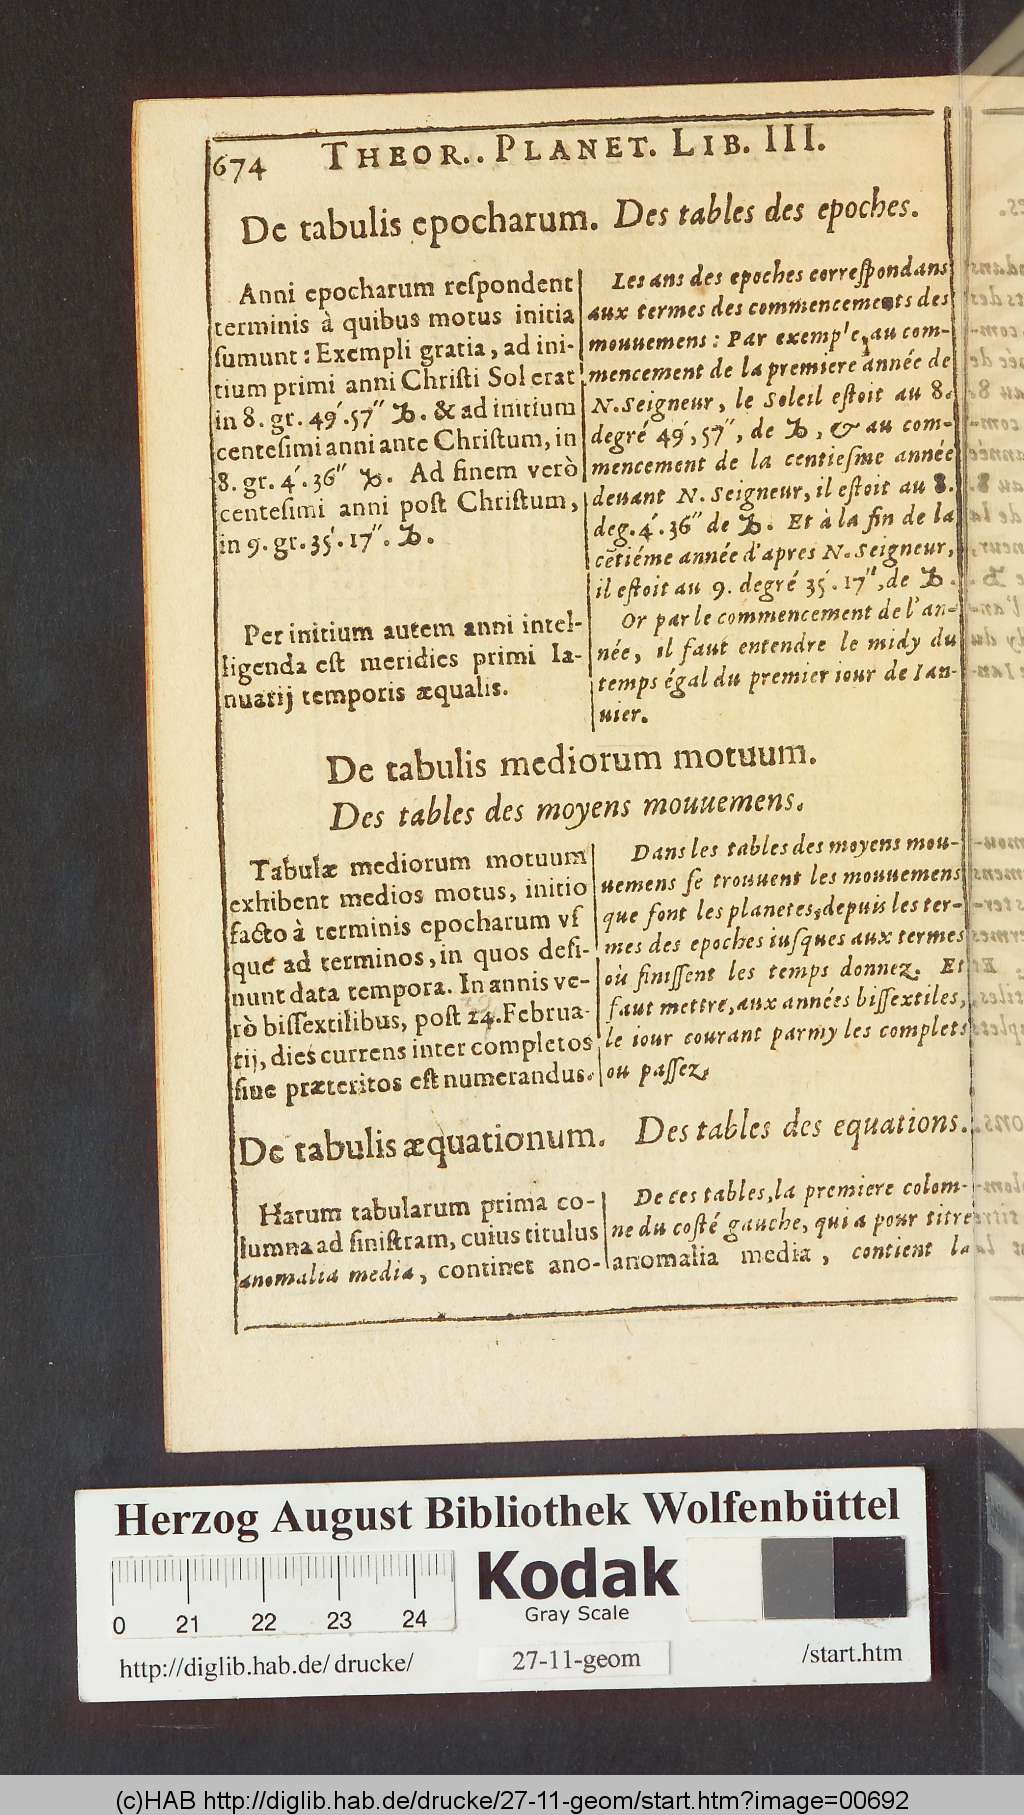 674 THEOR.. PLANET. LIB. III.
De tabulis epocharum.
Anni epocharum reſpondent
terminis à quibus motus initia
ſumunt: Exempli gratia, ad ini-
tium primi anni Chriſti Sol erat
in 8. gr. 49́.57″ ♑. & ad initium
centeſimi anni ante Chriſtum, in
8. gr. 4́. 36″ ♑. Ad finem verò
centeſimi anni poſt Chriſtum,
in 9. gr. 35́. 17″. ♑.
Per initium autem anni intel-
ligenda eſt meridies primi Ia-
nuarij temporis æqualis.
Des tables des epoches.
Les ans des epoches correſpondans
aux termes des commencements des
mouuemens: Par exemp'e, au com-
mencement de la premiere année de
N. Seigneur, le Soleil eſtoit au 8.
degré 49́, 57″, de ♑, & au com-
mencement de la centieſme année
deuant N. Seigneur, il eſtoit au 8.
deg. 4́. 36″ de ♑. Et à la fin de la
cẽtiéme année d'apres N. Seigneur,
il eſtoit au 9. degré 35́. 17″, de ♑.
Or par le commencement de l'an-
née, il faut entendre le midy du
temps égal du premier iour de Ian-
uier.
De tabulis mediorum motuum.
Des tables des moyens mouuemens.
Tabulæ mediorum motuum
exhibent medios motus, initio
facto à terminis epocharum vſ
que ad terminos, in quos deſi-
nunt data tempora. In annis ve-
rò biſſextilibus, poſt 24. Februa-
rij, dies currens inter completos
ſiue præteritos eſt numerandus.
Dans les tables des moyens mou-
uemens ſe trouuent les mouuemens
que font les planetes, depuis les ter-
mes des epoches iuſques aux termes
où finiſſent les temps donnez. Et
faut mettre, aux années biſſextiles,
le iour courant parmy les complets
ou paſſez.
De tabulis æquationum.
Harum tabularum prima co-
lumna ad ſiniſtram, cuius titulus
anomalia media, continet ano-
Des tables des equations.
De ces tables, la premiere colom-
ne du coſté gauche, qui a pour titre
anomalia media, contient la
Herzog August Bibliothek Wolfenbüttel
0 21 22 23 24
Kodak
Gray Scale
http://diglib.hab.de/drucke/ 27-11-geom /start.htm
(c)HAB http://diglib.hab.de/drucke/27-11-geom/start.htm?image=00692